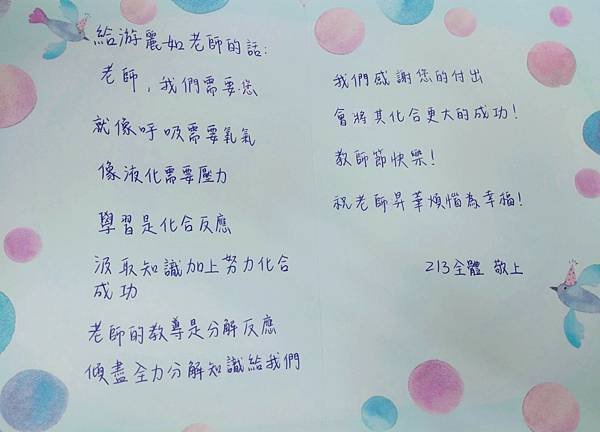 給游麗如老師的話:
老師，我們需要您
就像呼吸需要氧氣
像液化需要壓力
學習是化合反應
汲取知識加上努力化合
成功
老師的教導是分解反應
傾盡全力分解知識給我們
我們感謝您的付出
會將其化合更大的成功!
教師節快樂!
祝老師昇華煩惱為幸福!
213全體 敬上